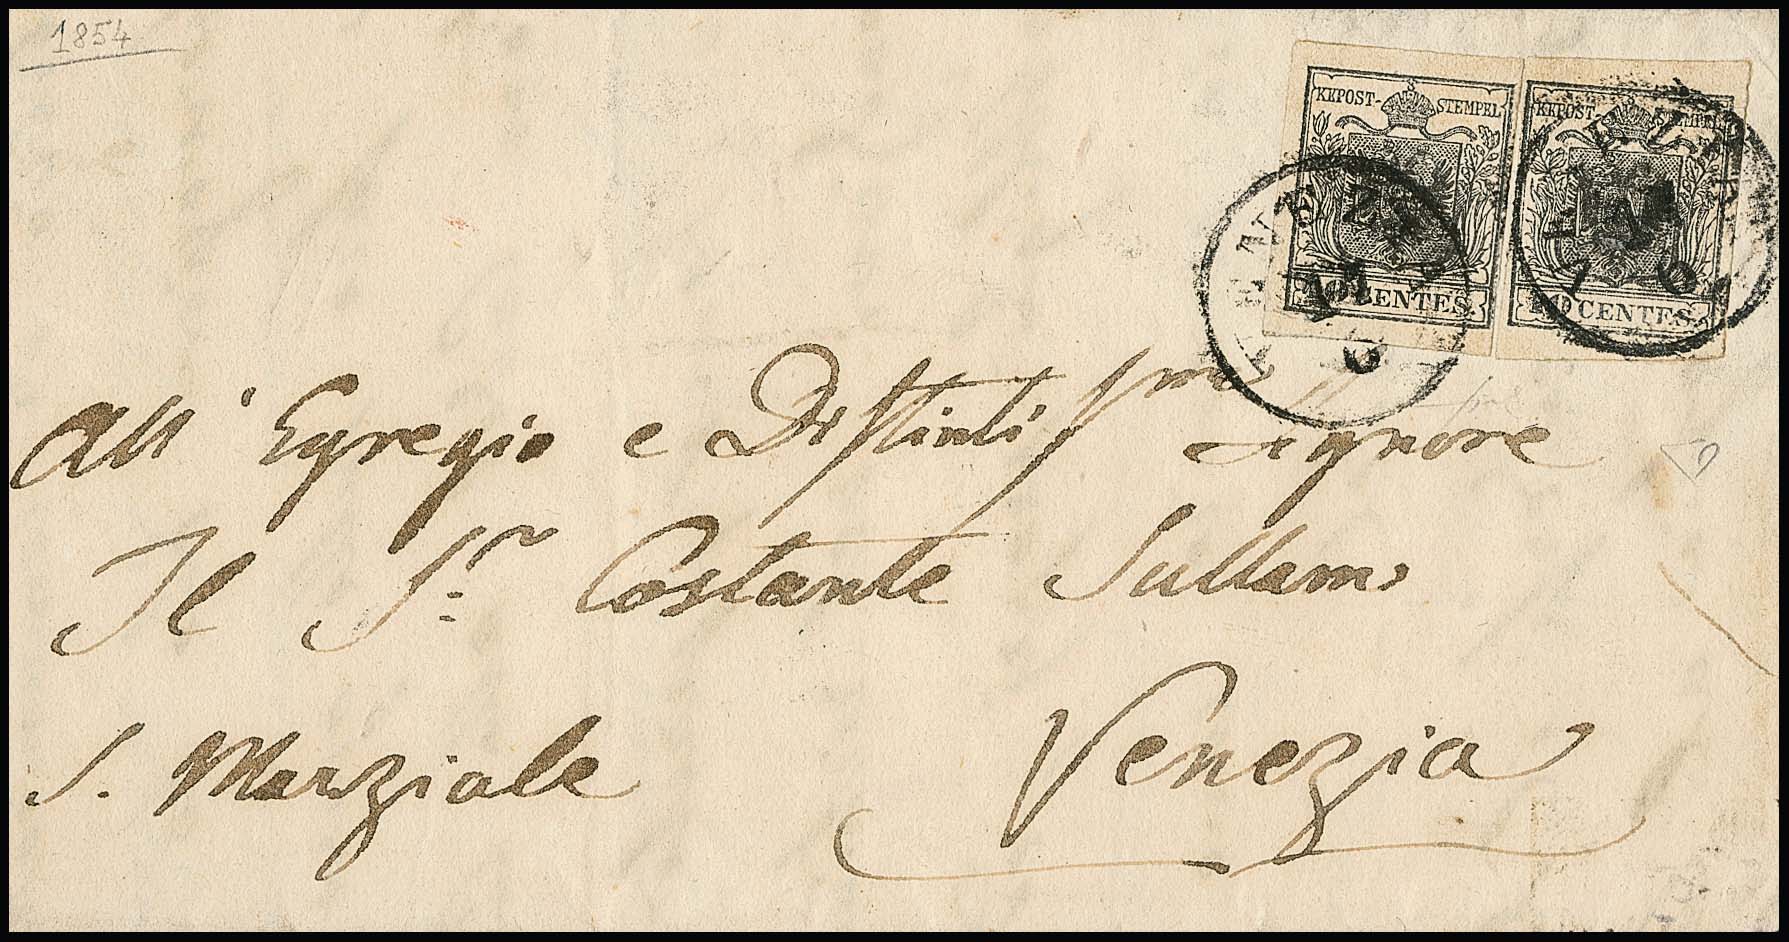 1854
KKPOST- STEMPEL
10 CENTES.
KKPOST- STEMPEL
10 CENTES.
All' Egregio e Distintissmo Signore
Il Sr: Costante Sullam
S. Marziale Venezia